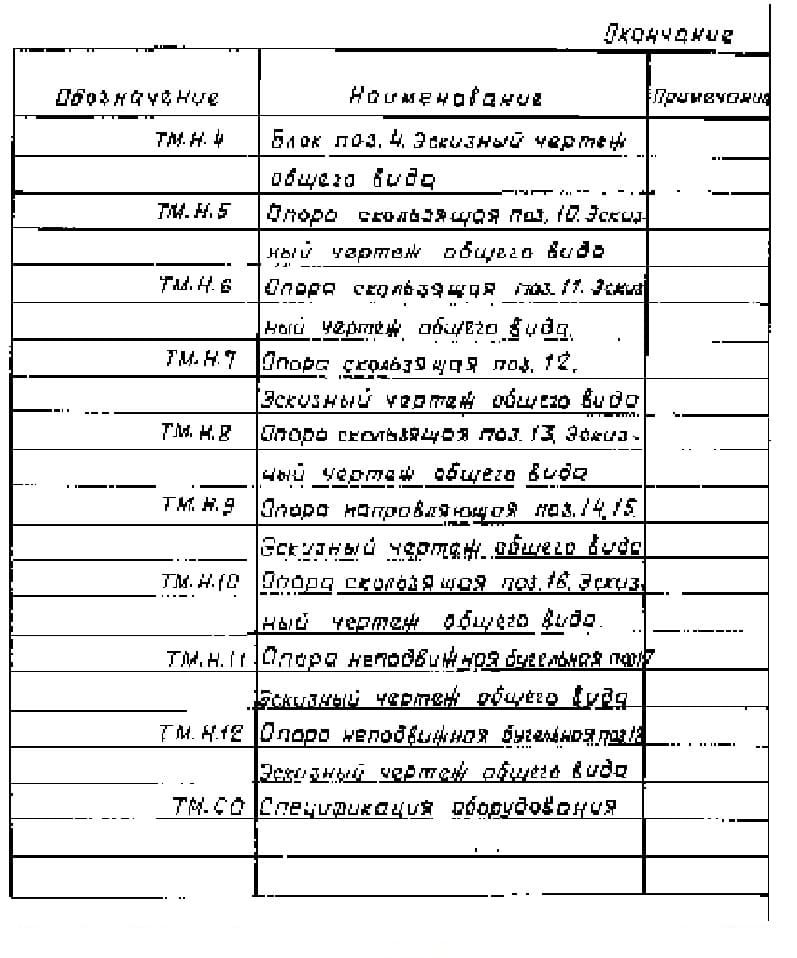 Окончание
Обозначение Наименование Примечание
ТМ.Н.4 Блок поз. 4. Эскизный чертеж
общего вида
ТМ.Н.5 Опора скользящая поз. 10. Эскиз-
ный чертеж общего вида
ТМ.Н.6 Опора скользящая поз. 11. Эскиз
ный чертеж общего вида
ТМ.Н.7 Опора скользящая поз. 12.
Эскизный чертеж общего вида
ТМ.Н.8 Опора скользящая поз. 13, Эскиз-
ный чертеж общего вида
ТМ.Н.9 Опора направляющая поз. 14, 15.
Эскизный чертеж общего вида
ТМ.Н.10 Опора скользящая поз. 16. Эскиз-
ный чертеж общего вида.
ТМ.Н.11 Опора неподвижная бугельная поз17
Эскизный чертеж общего вида
ТМ.Н.12 Опора неподвижная бугельная поз18
Эскизный чертеж общего вида
ТМ.СО Спецификация оборудования